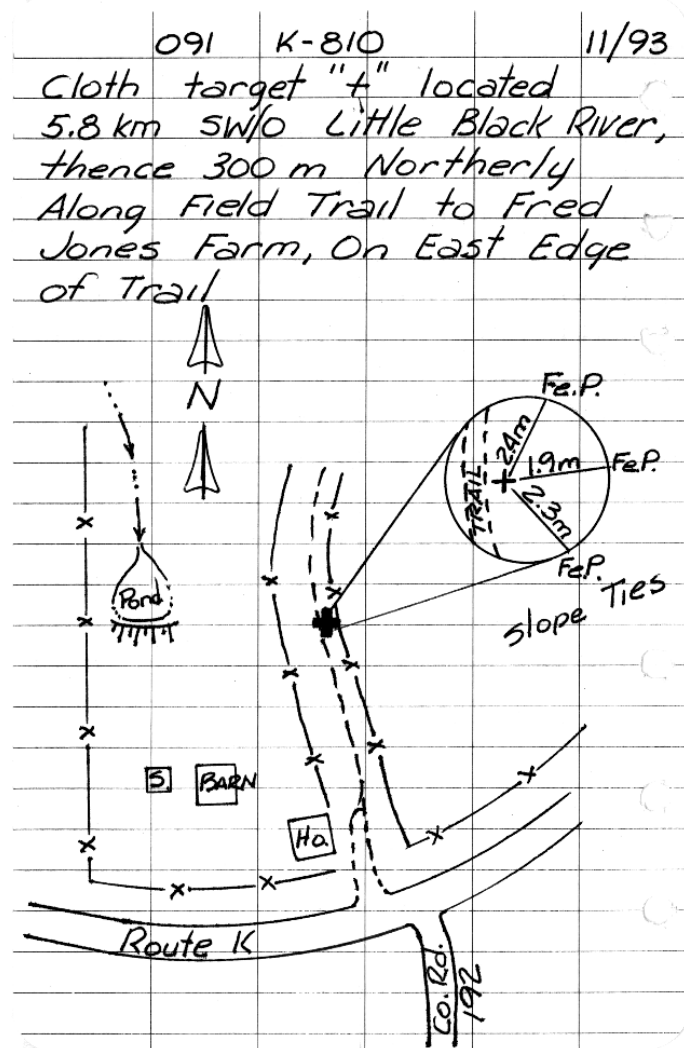 091 K-810 11/93
Cloth target "+" located
5.8 km SW/O Little Black River,
thence 300 m Northerly
Along Field Trail to Fred
Jones Farm, On East Edge
of Trail
N
Fe.P.
2.4m
1.9m Fe.P.
TRAIL
2.3m
Fe.P.
Slope Ties
Pond
S. BARN
Ho.
Route K
Co. Rd.
192